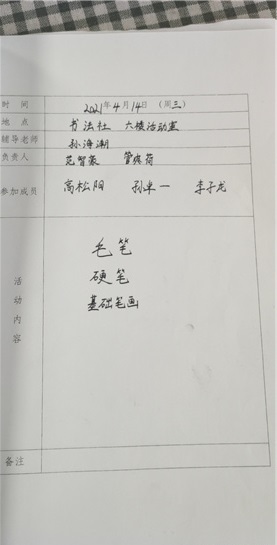 时 间 2021年4月14日（周三）
地 点 书法社 六楼活动室
辅导老师 孙海潮
负责人 范智豪
参加成员 高松阳 孙卓一 李子龙
毛笔
硬笔
基础笔画
活动内容
备注